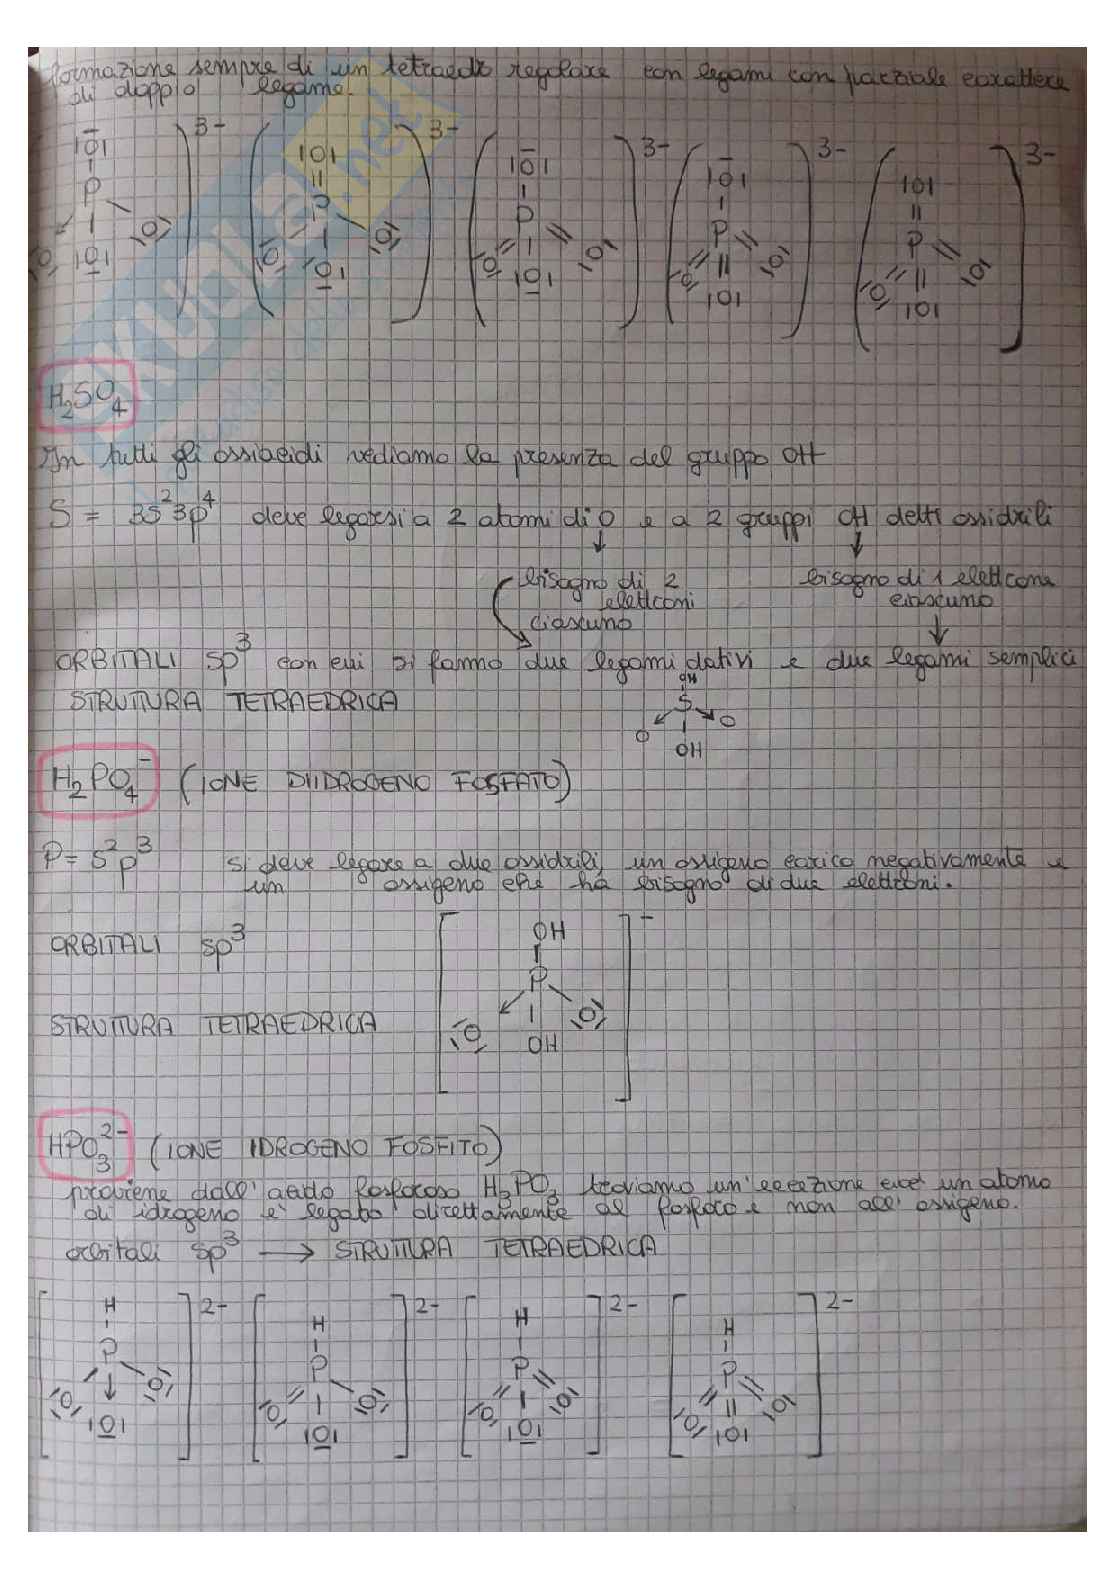 formazione sempre di un tetraedro regolare con legami con parziale carattere
di doppio legame.
3- 3- 3- 3- 3-
|O| |O| |O| |O| |O|
P P P P P
O |O| O O |O| O O |O| O O |O| O O |O| O
H2SO4
In tutti gli ossiacidi vediamo la presenza del gruppo OH
S = 3s² 3p⁴ deve legarsi a 2 atomi di O e a 2 gruppi OH detti ossidrili
bisogno di 2 bisogno di 1 elettrone
elettroni ciascuno
ciascuno
ORBITALI sp³ con cui si fanno due legami dativi e due legami semplici
STRUTTURA TETRAEDRICA
OH
S
O O
OH
H2PO4⁻ (IONE DIIDROGENO FOSFATO)
P= s² p³ si deve legare a due ossidrili, un ossigeno carico negativamente e
un ossigeno che ha bisogno di due elettroni.
ORBITALI sp³
STRUTTURA TETRAEDRICA
OH
P
O O
OH
-
HPO3²⁻ (IONE IDROGENO FOSFITO)
proviene dall'acido fosforoso H3PO3 troviamo un'eccezione cioè un atomo
di idrogeno è legato direttamente al fosforo e non all'ossigeno.
orbitali sp³ → STRUTTURA TETRAEDRICA
2- 2- 2- 2-
H H H H
P P P P
O |O| O O |O| O O |O| O O |O| O